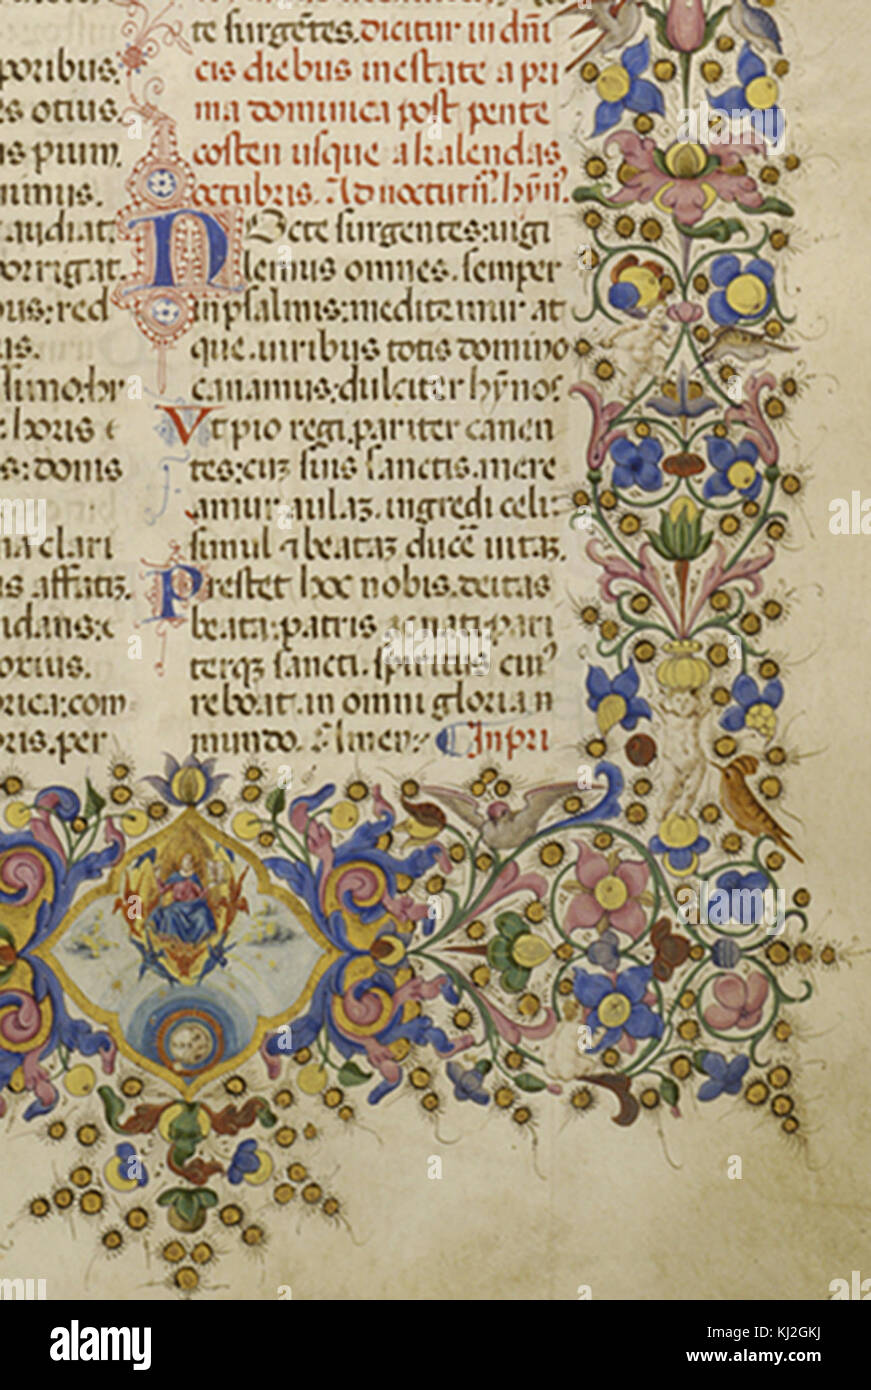 poribus.
es otius.
is pium.
nimus.
audiat.
porrigat.
pus: red
is.
: horis e
s: donis
na clari
is affatiꝫ.
idans: e
oxius.
rica: com
oris. per
te surgẽtes. dicitur in dñi
cis diebus in estate a pri
ma dominica post pente
costen usque a kalendas
octubris. Ad nocturnũ. hỹm̃.
NOcte surgentes: uigi
lemus omnes. semper
in psalmis: meditemur at
que. uiribus totis domino
canamus: dulciter hỹnos.
Vt pio regi. pariter canen
tes: cuꝫ suis sanctis. mere
amur aulaꝫ. ingredi celi:
simul ⁊ beataꝫ ducẽ uitaꝫ.
Prestet hoc nobis. deitas
beata: patris ac nati pari
terqꝫ sancti. spiritus cui⁹
reboat. in omni gloria in
mundo. Amen: In pri
alamy
a
alamy stock photo
KJ2GKJ
www.alamy.com